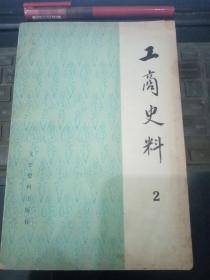 工商史料
2
文史资料出版社